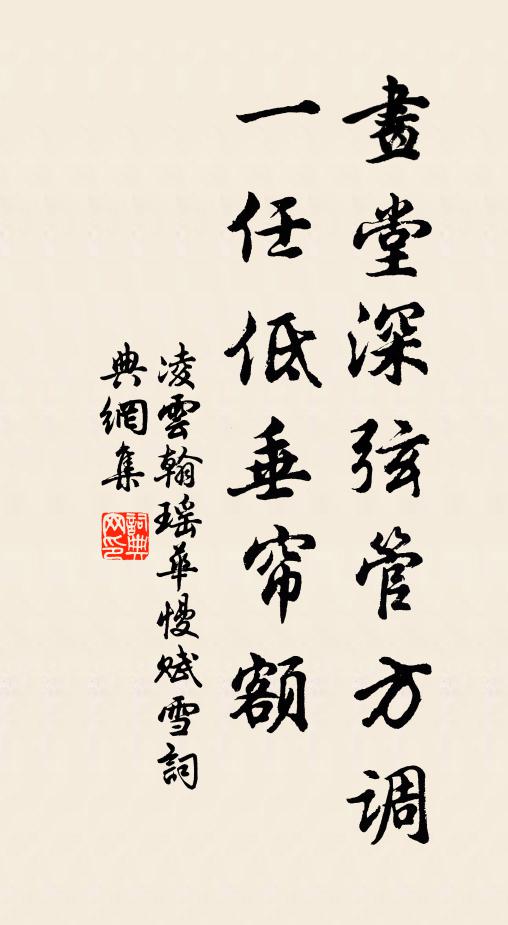 畫堂深弦管方调
一任低垂帘額
凌雲翰瑶華慢赋雪詞
典網集
詞典网印